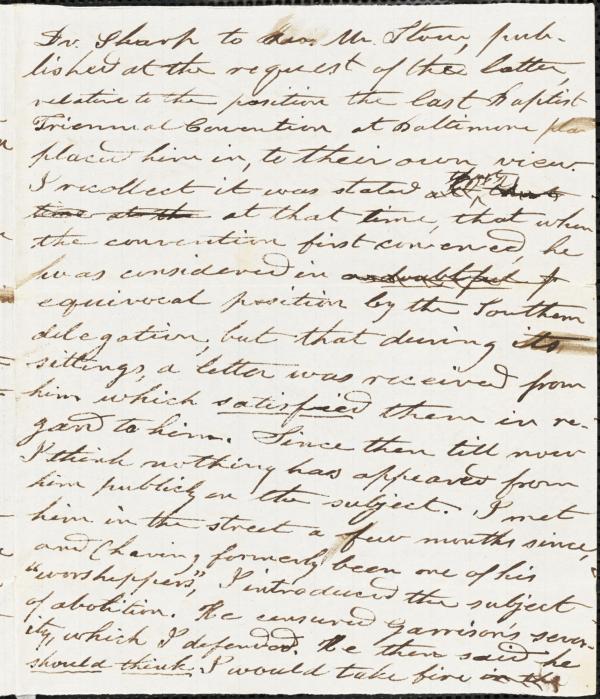 Dr. Sharp to Mr. Stow, pub-
lished at the request of the latter,
relative to the position the last Baptist
Triennial Convention at Baltimore pla
placed him in, to their own view.
I recollect it was stated at that
time at the at that time, that when
the convention first convened, he
was considered in a doubtful &
equivocal position by the Southern
delegation, but that during its
sittings, a letter was received from
him which satisfied them in re-
gard to him. Since then till now
I think nothing has appeared from
him publicly on the subject. I met
him in the street a few months since,
and (having formerly been one of his
"worshippers", I introduced the subject
of abolition. He censured Garrison's sever-
ity, which I defended. He then said he
should think I would take fire in the